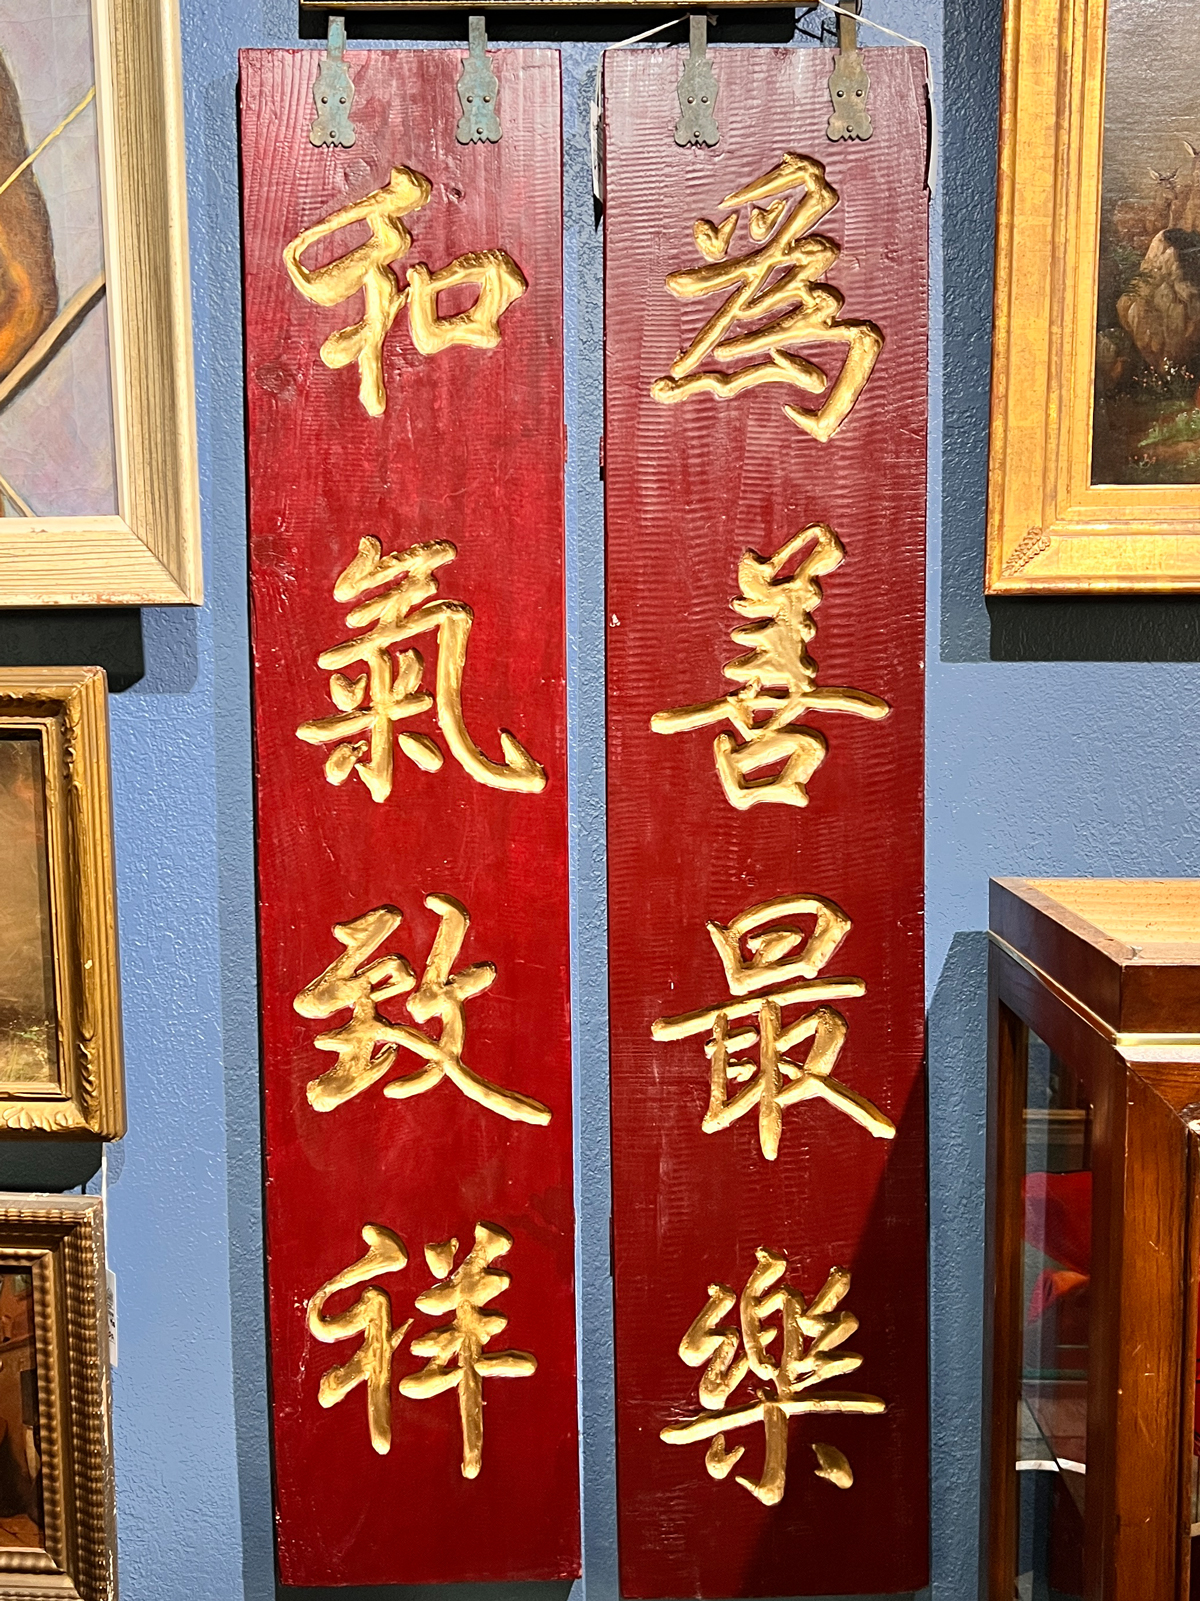 為善最樂
和氣致祥